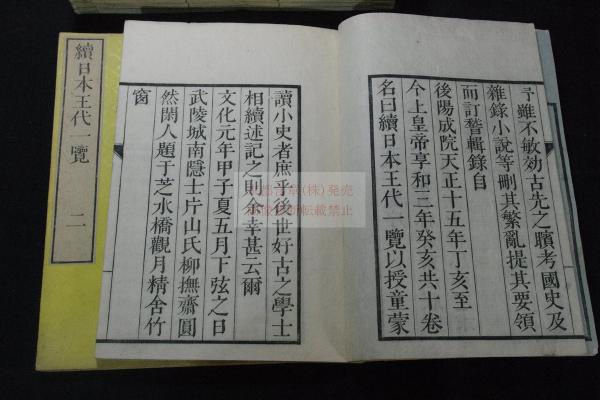 續日本王代一覽 二
予雖不敏効古先之躅考國史及
雜錄小説等刪其繁亂提其要領
而訂諬輯錄自
後陽成院天正十五年丁亥至
今上皇帝享和三年癸亥共十卷
名曰續日本王代一覽以授童蒙
讀小史者庶乎後世好古之學士
相續述記之則余幸甚云爾
文化元年甲子夏五月下弦之日
武陵城南隱士片山氏柳撫齋圓
然閑人題于芝水橋觀月精舍竹
窗
(株)発売
転載禁止